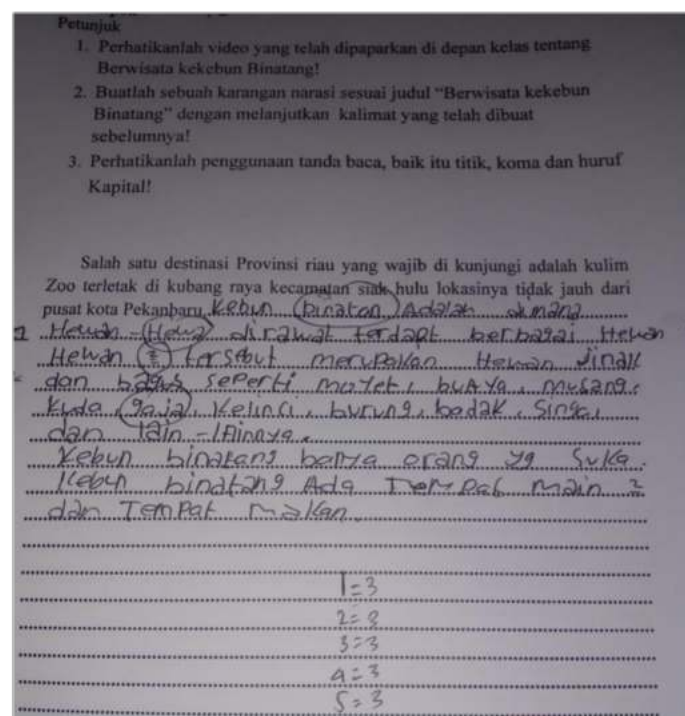 Petunjuk
1. Perhatikanlah video yang telah dipaparkan di depan kelas tentang
Berwisata kekebun Binatang!
2. Buatlah sebuah karangan narasi sesuai judul “Berwisata kekebun
Binatang” dengan melanjutkan kalimat yang telah dibuat
sebelumnya!
3. Perhatikanlah penggunaan tanda baca, baik itu titik, koma dan huruf
Kapital!
Salah satu destinasi Provinsi riau yang wajib di kunjungi adalah kulim
Zoo terletak di kubang raya kecamatan siak hulu lokasinya tidak jauh dari
pusat kota Pekanbaru, Kebun binatan Adalah dimana
Hewan-Hewa dirawat terdapt berbagai Hewan
Hewan 2 tersebut merupakan Hewan Jinak
dan bagus seperti monyet, buaya, musang,
Kuda gaja, Kelinci, burung, badak, Singa,
dan lain-lainnya.
Kebun binatang banya orang yg suka.
Kebun binatang Ada Tempat main 2
dan Tempat makan.
1=3
2=3
3=3
4=3
5=3